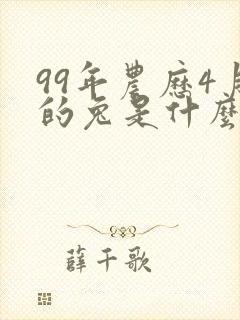 99年農历4月
的兔是什麼
薛千歌